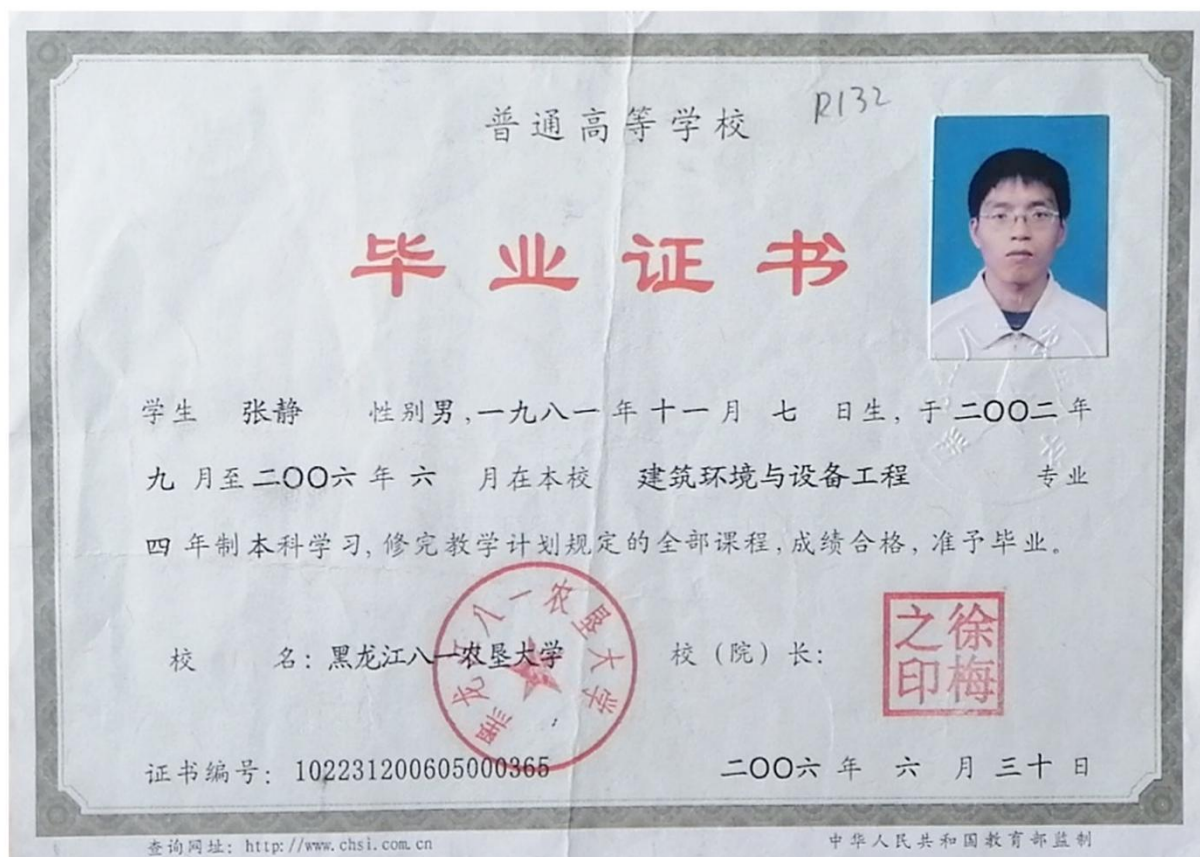 普通高等学校
R132
毕业证书
学生 张静 性别男,一九八一年十一月 七 日生,于二〇〇二年
九 月至二〇〇六年 六 月在本校 建筑环境与设备工程 专业
四年制本科学习,修完教学计划规定的全部课程,成绩合格,准予毕业。
校 名:黑龙江八一农垦大学 校(院)长:
黑龙江八一农垦大学
徐梅之印
证书编号:102231200605000365 二〇〇六年 六 月三十日
查询网址:http://www.chsi.com.cn 中华人民共和国教育部监制